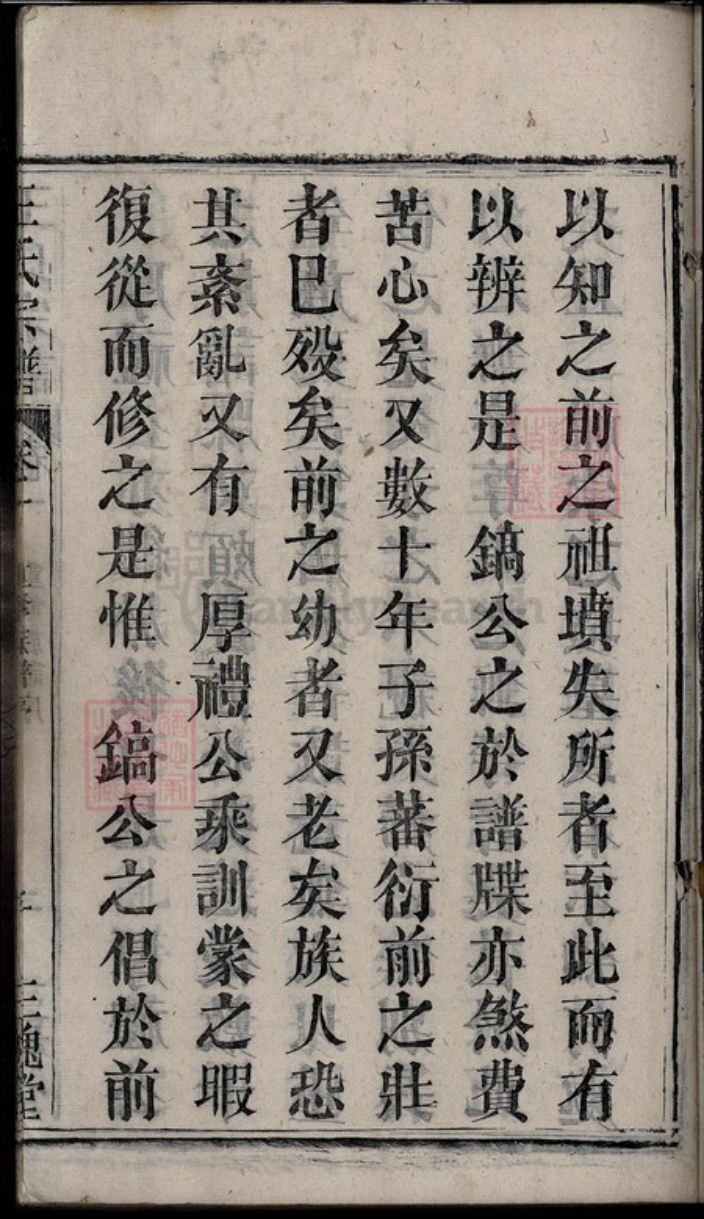 以知之前之祖墳失所者至此而有
以辨之是 鎬公之於譜牒亦煞費
苦心矣又數十年子孫蕃衍前之壯
者巳歿矣前之幼者又老矣族人恐
其紊亂又有 厚禮公乘訓蒙之暇
復從而修之是惟 鎬公之倡於前
王氏宗譜 三槐堂